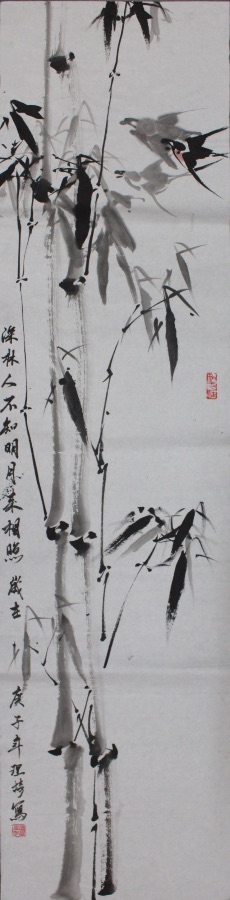 深林人不知明月来相照 歲在
庚子年 寫